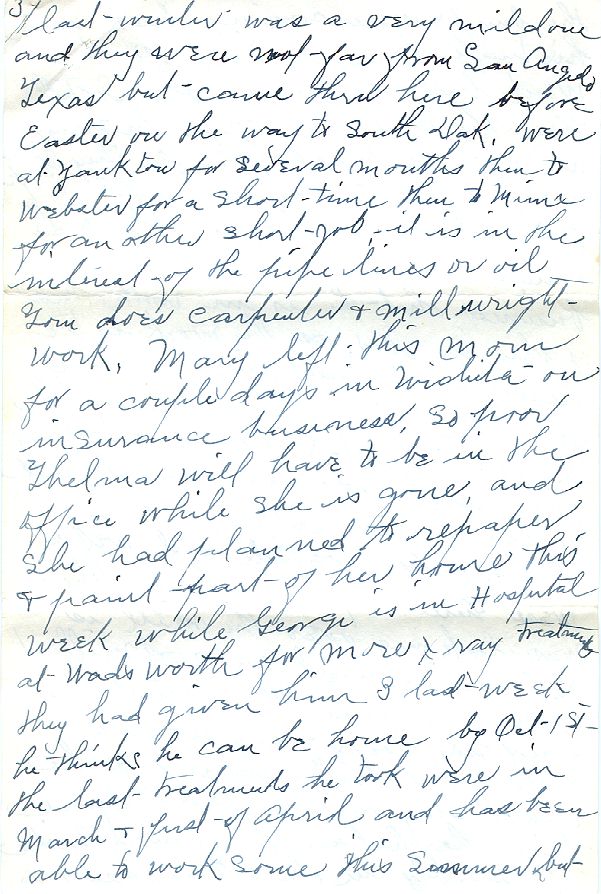 3
last winter was a very mild one
and they were not far from San Angelo
Texas but came thru here before
Easter on the way to South Dak. were
at Yankton for several months then to
Webster for a short time then to Minn
for another short job, it is in the
interest of the pipe lines or oil
Tom does carpenter & millwright
work. Mary left this morn
for a couple days in Wichita on
insurance business, so poor
Thelma will have to be in the
office while she is gone, and
she had planned to repaper
& paint part of her house this
week while George is in Hospital
at Wadsworth for more x ray treatments
they had given him 3 last week
he thinks he can be home by Oct 1st
the last treatments he took were in
March & first of April and has been
able to work some this Summer, but